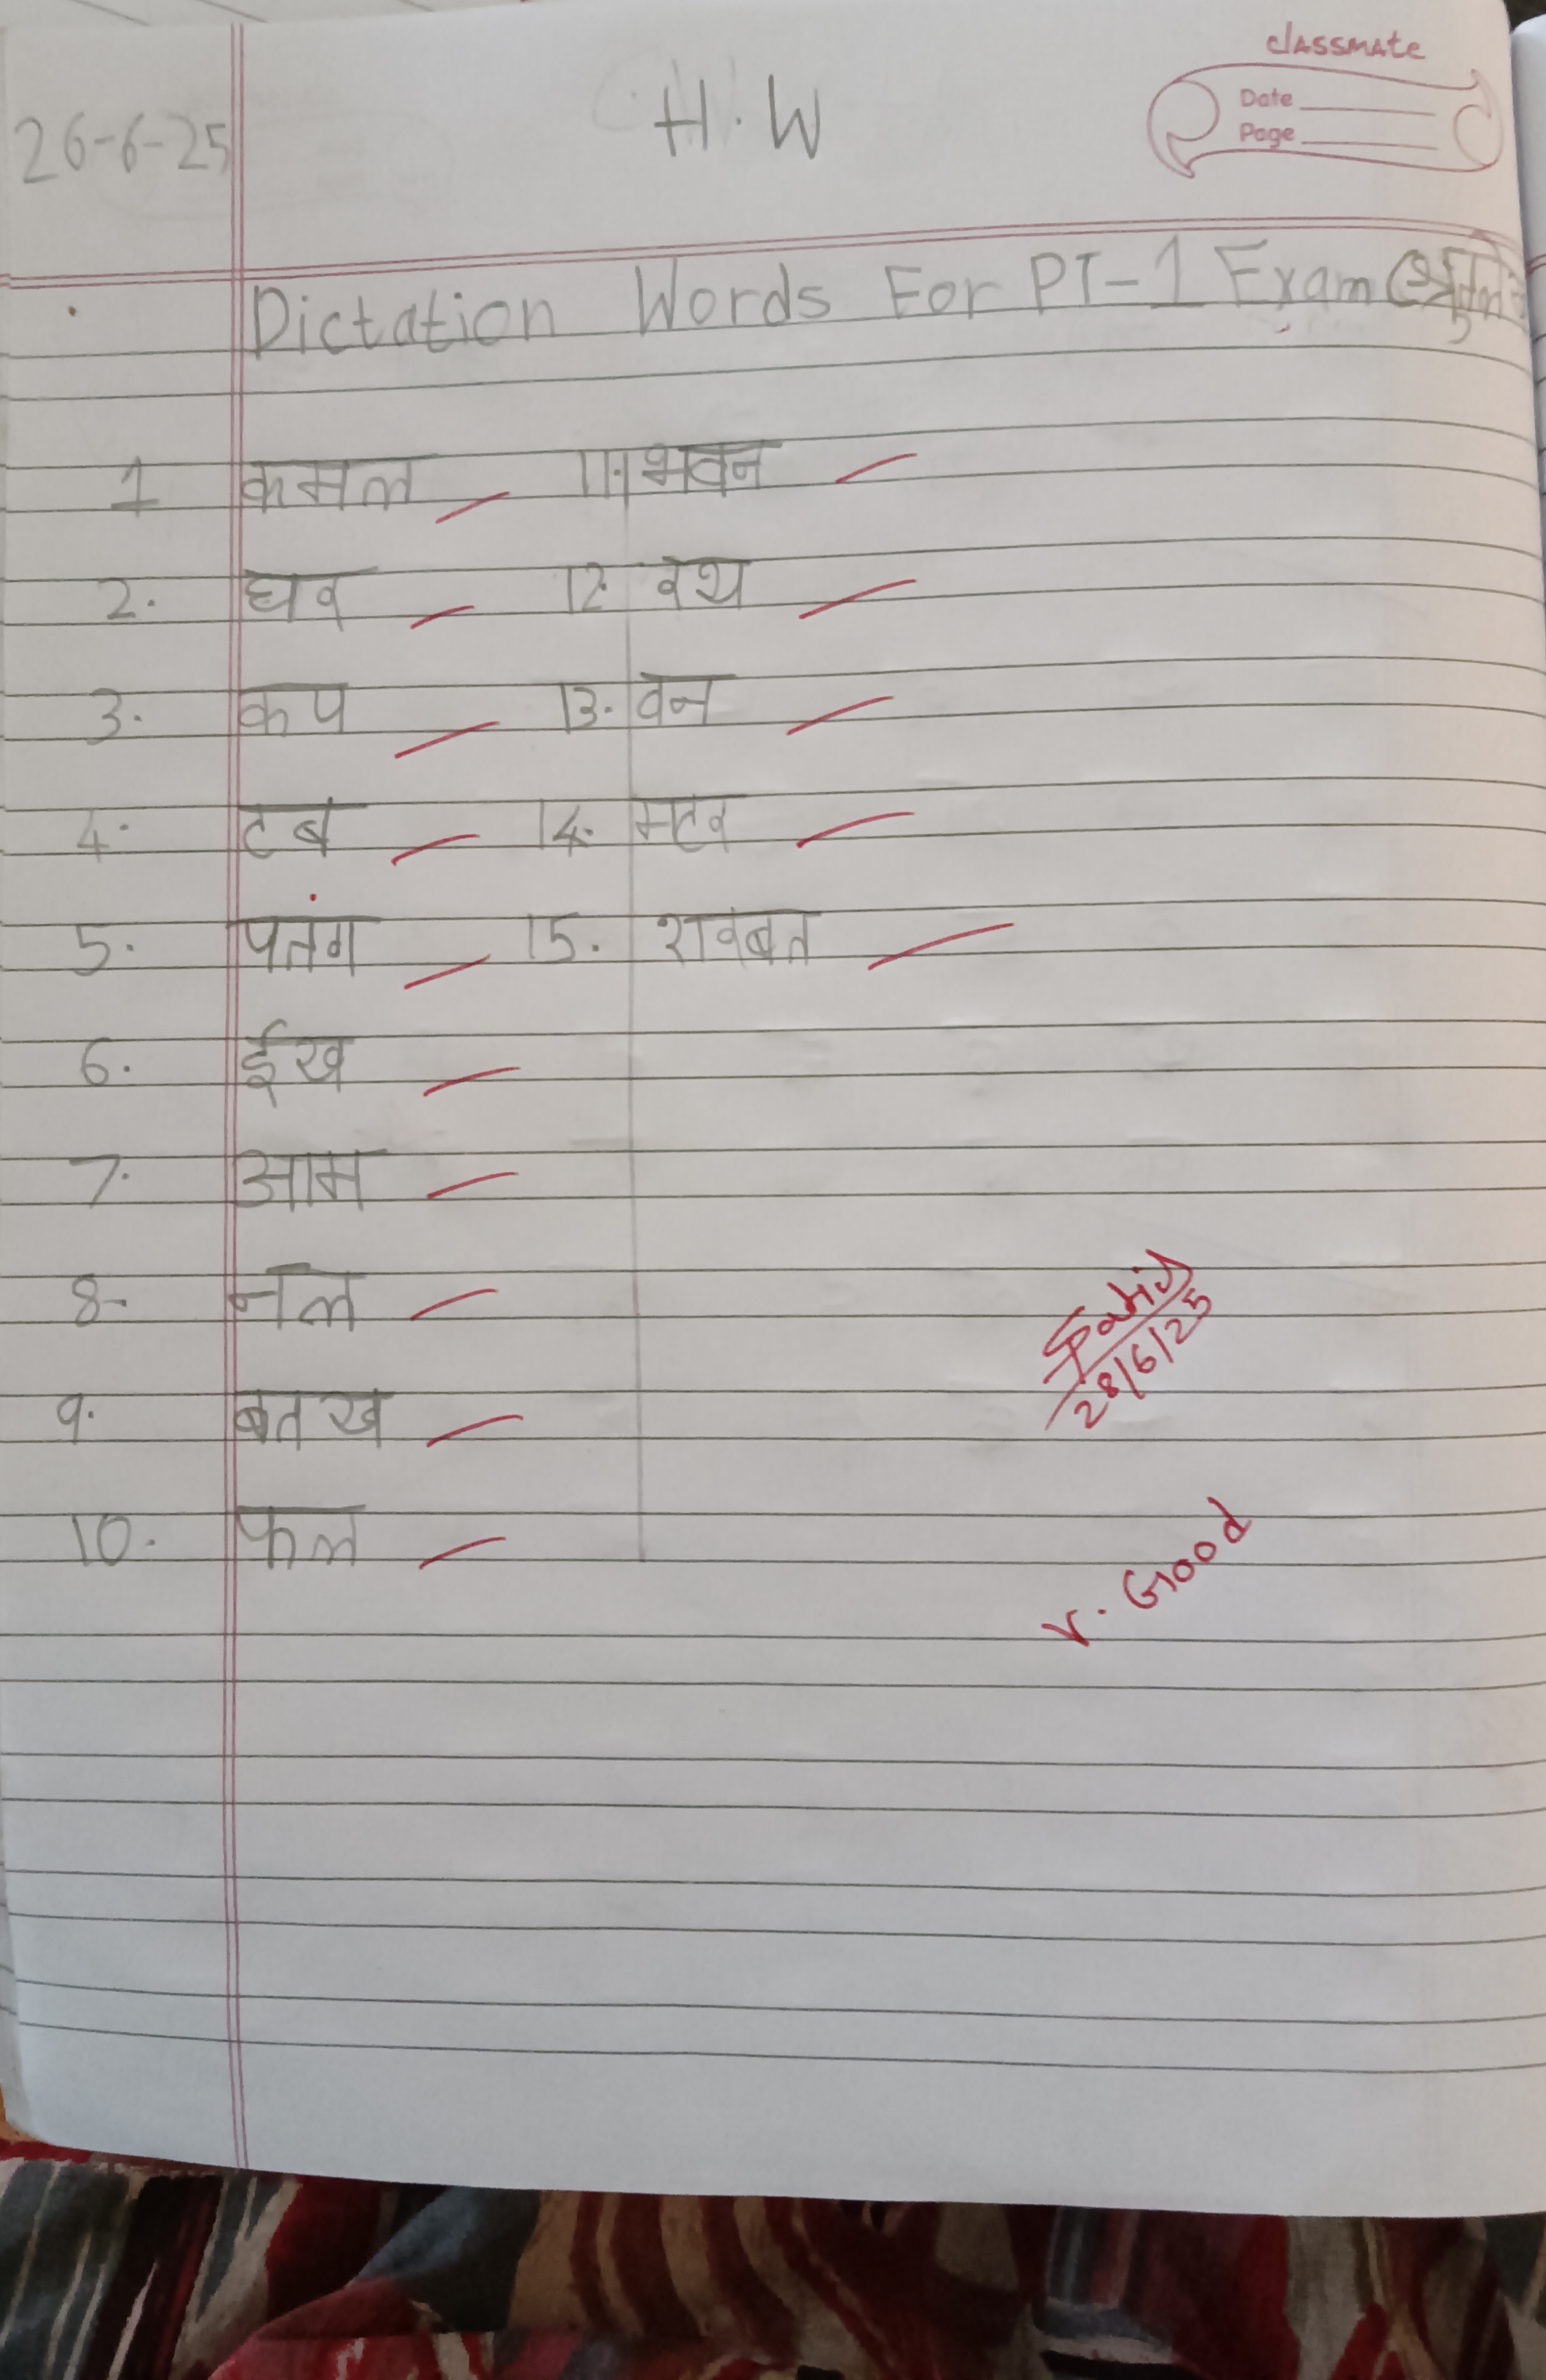 classmate
Date
Page
26-6-25 H.W
Dictation Words For PT-1 Exam
1 कमल 11. भवन
2. घर 12. रथ
3. कप 13. वन
4. टब 14. मटर
5. पतंग 15. शरबत
6. ईख
7. आम
8- नल
9. बतख
10. फल
28/6/25
V. Good